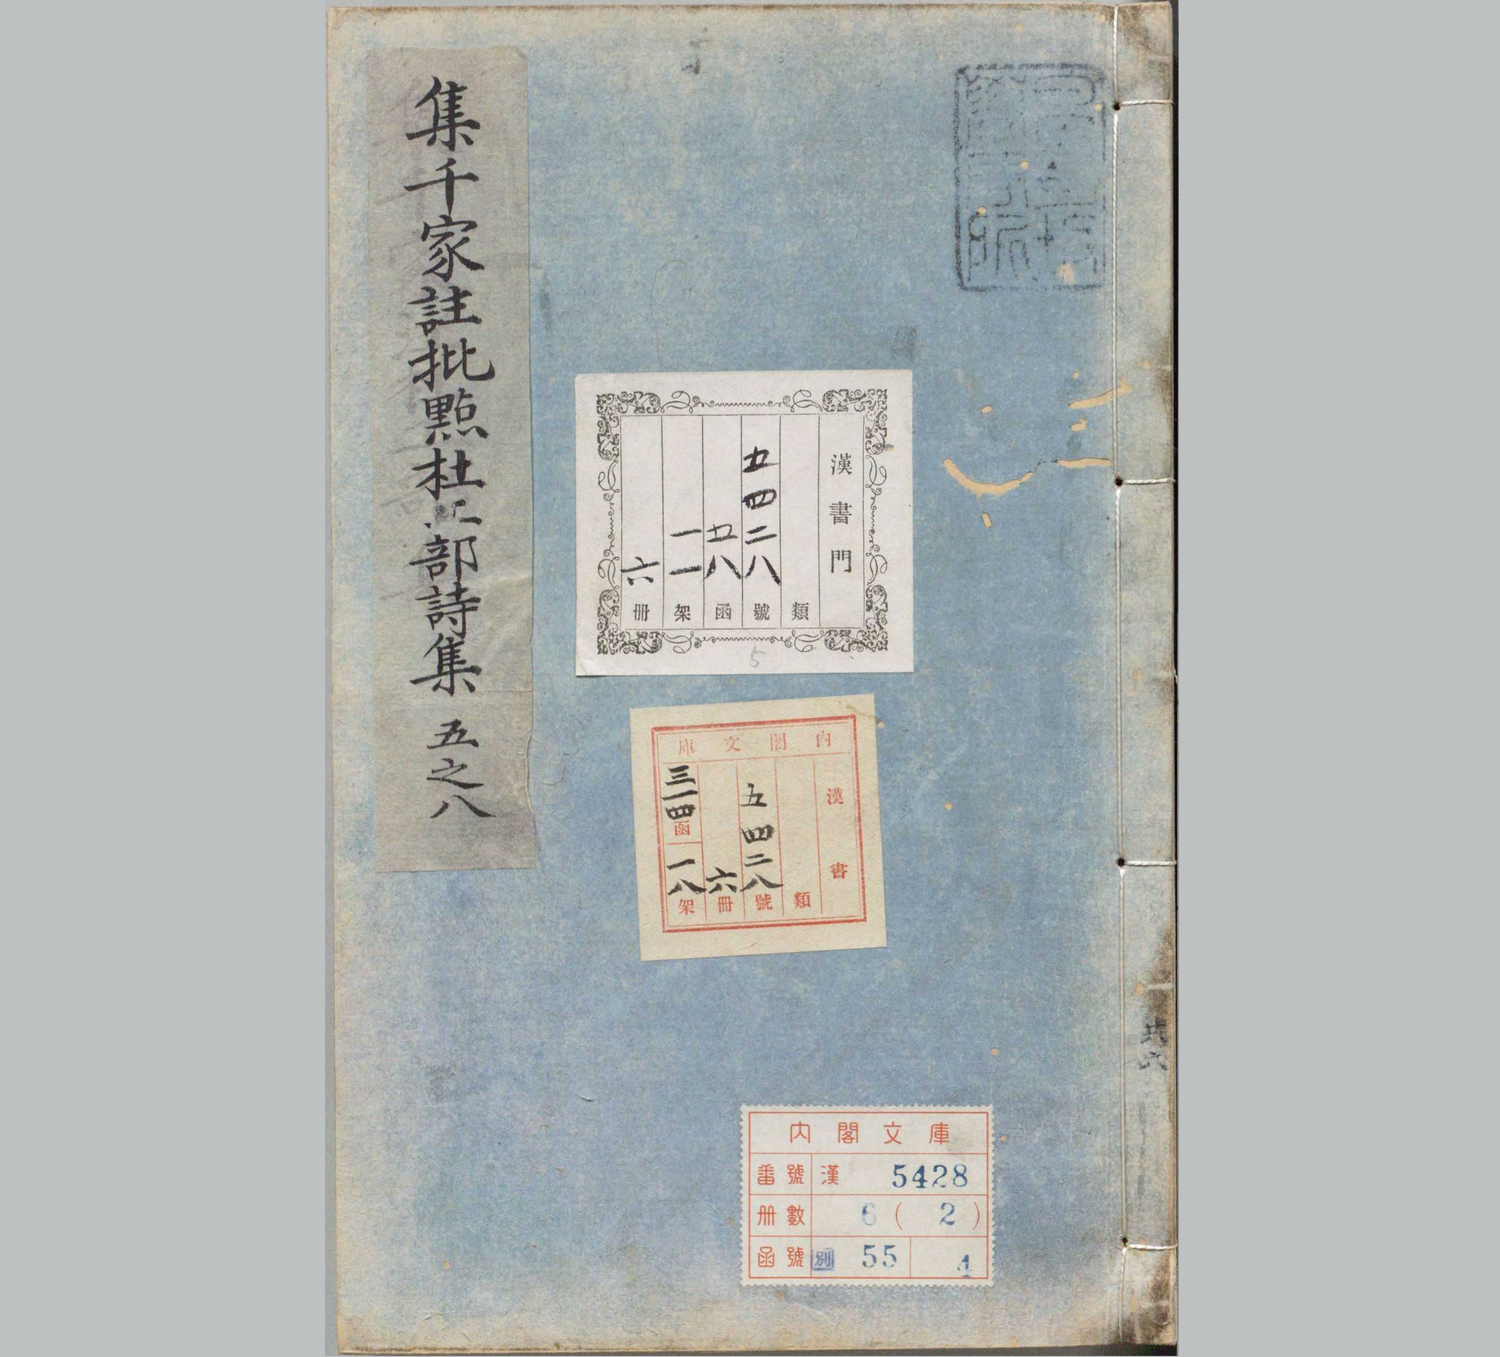 集千家註批點杜工部詩集 五之八
漢書門
類
五四二八號
五八函
一一架
六冊
內閣文庫
漢書
類
五四二八號
六冊
三一四函
一八架
5
內閣文庫
番號 漢 5428
冊數 6 ( 2 )
函號 別 55 4